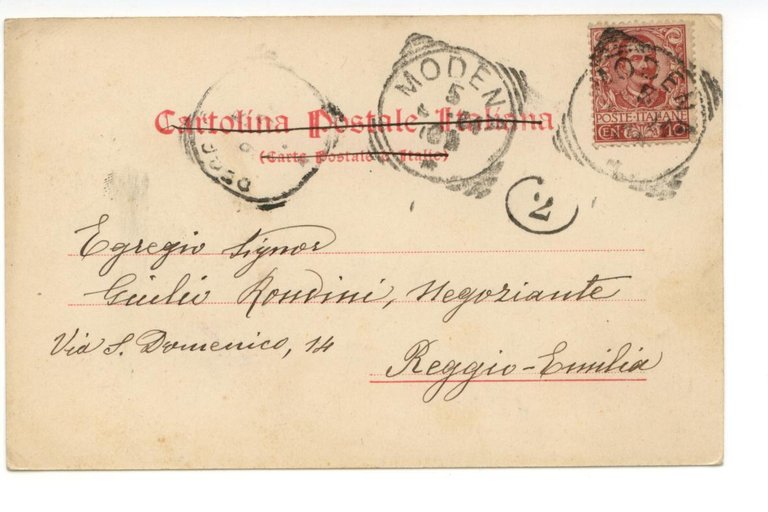 MODEN
5
POSTE·ITALIANE
CEN 10
Cartolina Postale Italiana
(Carte Postale d'Italie)
7.
Egregio Signor
Giulio Rondini, Negoziante
Via S. Domenico, 14
Reggio-Emilia